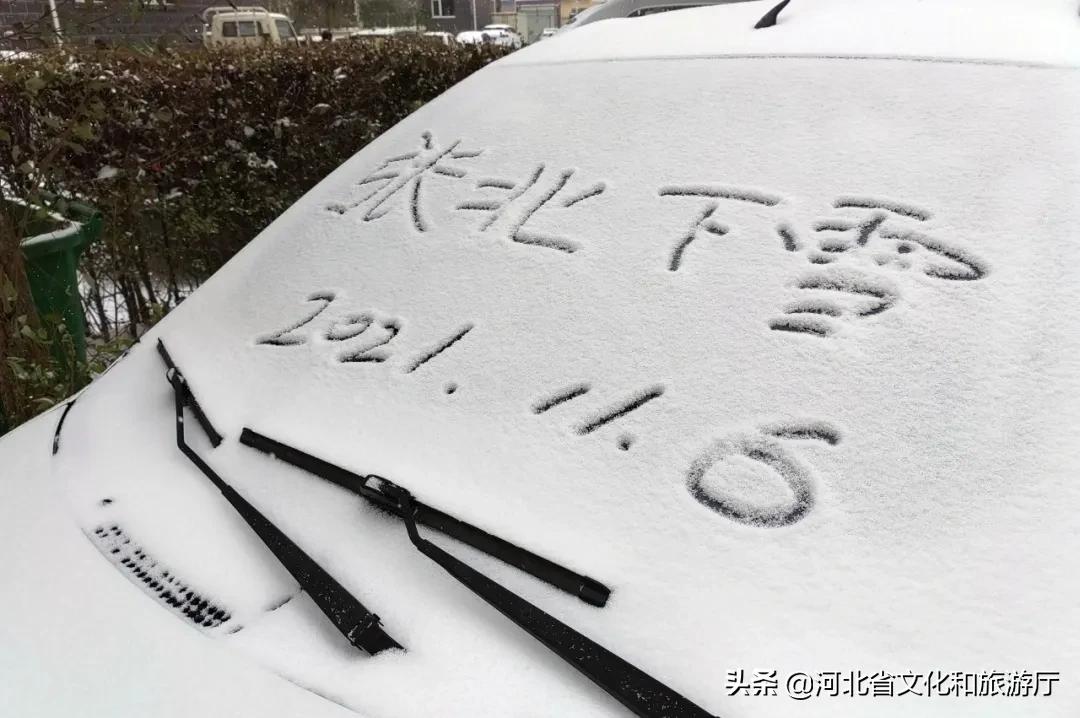 张北下雪
2021.11.6
头条 @河北省文化和旅游厅